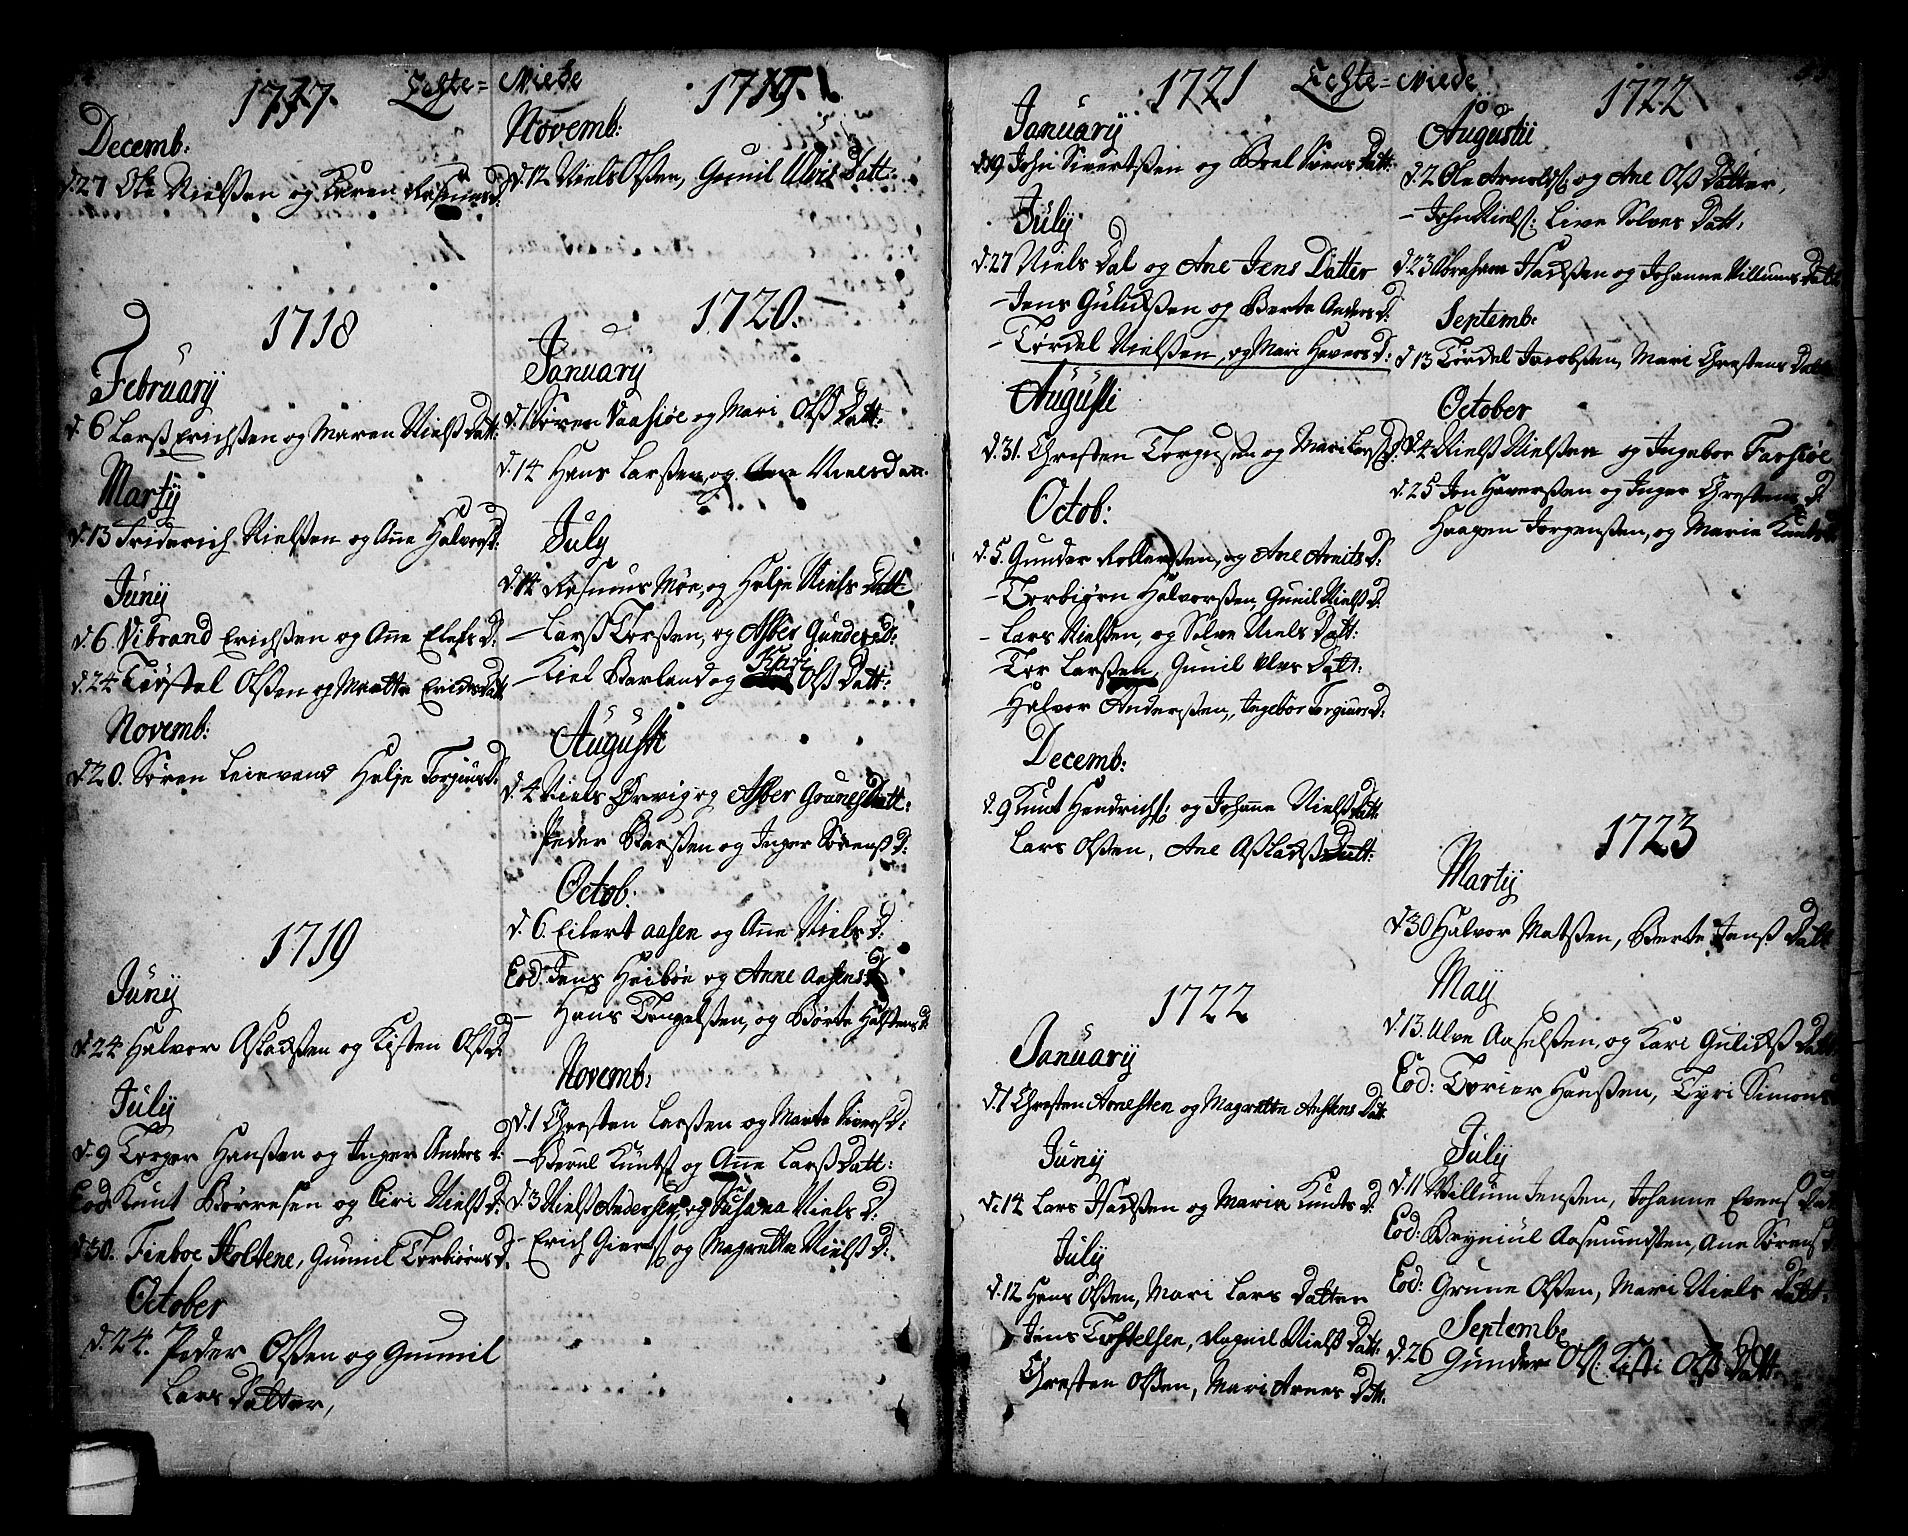 1717. Echte=
Decemb:
d.27 Ole Nielßen og Karen Rasmusd:
1718
February
d. 6 Larß Erichßen og Maren Nielß Datt:
Martij
d.13 Friderich Nielßen og Añe Halvorsd:
Junij
d.6 Vibrand Erichßen og Añe Elefs D:
d.24 Torstel Olßen og Mætte Erichs Datt
Novemb:
d.20. Søren Leirvand Helje Torgiusd:
1719
Junij
d.24 Halvor Asladßen og Kisten Olßd
Julij
d.9 Torger Hanßen og Inger Anders d:
Eod: Knut Børresen og Siri Nielßd:
d.30. Finboe Holtene, Gunnil Torbiørnsd.
October
d.24. Peder Olßen og Gunnil
Lars Datter,
Miede 1719.
Novemb:
d.12 Niels Olßen, Gunil Ulvis Datt:
1720.
January
d.1 Søren Vaasiøe og Mari Olß Datt:
d.14 Hans Larßen, og Ane Nielsdatt.
July
d.14 Rasmus Møe, og Helje Niels Datt
– Larß Torßen, og Asber Gundersd:
– Kiel Barland og Kari Olß Datt:
Augusti
d.4 Niels Ørvig og Asber Grunesdatt:
Peder Barßen og Inger Sørenß D:
Octob:
d.6. Eilert Aasen og Añe Niels D:
Eod: Jens Heibøe og Anne Aasens D
– Hans Tengelßen, og Børte Halstensd:
Novemb:
d.1 Chresten Larßen og Marite Siversd:
– Berul Kuntß og Añe Larß Datt:
d.3 Nielß Anderßen, og Susana Niels D:
– Erich Giertß og Magrette Nielß D:
1721 Echte=
January
d.19 John Sivertßen og Boel Svens Datt:
July
d.27 Niels Dal og Ane Jens Datter
– Jens Gulidßen og Berte Anders D:
– Tørdel Nielßen, og Mari Havers D:
Augusti
d.31. Chresten Torgusen og Mari D:
Octob:
d.5. Gunder Rollefßen, og Ane Arnits D:
– Torbiørn Halvorßen, Gunil Nielß D.
– Lars Nielßen, og Solve Niels Datt:
– Tor Larßen, Gunil Ules Datt:
– Halvor Anderßen, Ingebor Torgiusd:
Decemb:
d.9 Knut Hendrichß: og Johane Nielßdatt:
Lars Olßen, Ane Asladßdatt:
1722
January
d.1 Chresten Arnesten og Magrette Arstens Datt
Junij
d.14 Lars Hadßen og Maria Knuts D:
July
d.12 Hans Olßen, Mari Lars Datter
Jens Torstelsen, Ragnil Nielß Datt:
Chresten Olßen, Mari Arnes Datt:
Miede 1722
Augustij
d.2 Ole Arnoldß og Ane Olß Datter,
– John Nielß: Live Solves Datt,
d.23 Abraham Hadßen og Johanne Villumsdatt
Septemb:
d.13 Tordel Jacobßen, Mari Chrestens Datt
October
d.4 Nielß Nielßen og Ingebor Farsiøe
d.25 Jon Haverßen og Inger Chrestens D
Haagen Jorgenßen, og Marie Knutsd.
1723
Martij
d.30 Halvor Matßen, Berte Jenß Datt
Maij
d.13. Ulve Aaselßen, og Kari Gulichß Datt
Eod: Torier Hanßen, Tyri Simonsd
July
d.11 Willum Jenßen, Johanne Evens Datt
Eod: Bryniul Aasmundsten, Ane Sørensd
Eod: Grune Olßen, Mari Niels Datt:
Septembr
d.26 Gunder Olß: Kisti Olß Datt: